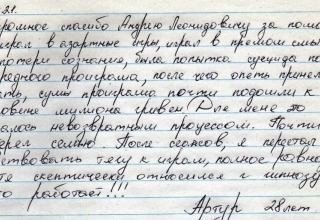 21.
громное спасибо Андрею Леонидовичу за пом
грал в азартные игры, играл в прямом смы
потери сознание, была попытка суецида по
редного проиграма, после чего опять
ать, сумы проиграма почти подошли к
овине милиона гривен Для меня это
алось невозвратным процессом. Почти
ерял семью. После сеансов, я перестал
ствовать тягу к играм, полное равно
те скептически относился к гипнозу
то работает!!!
Артур 28 лет